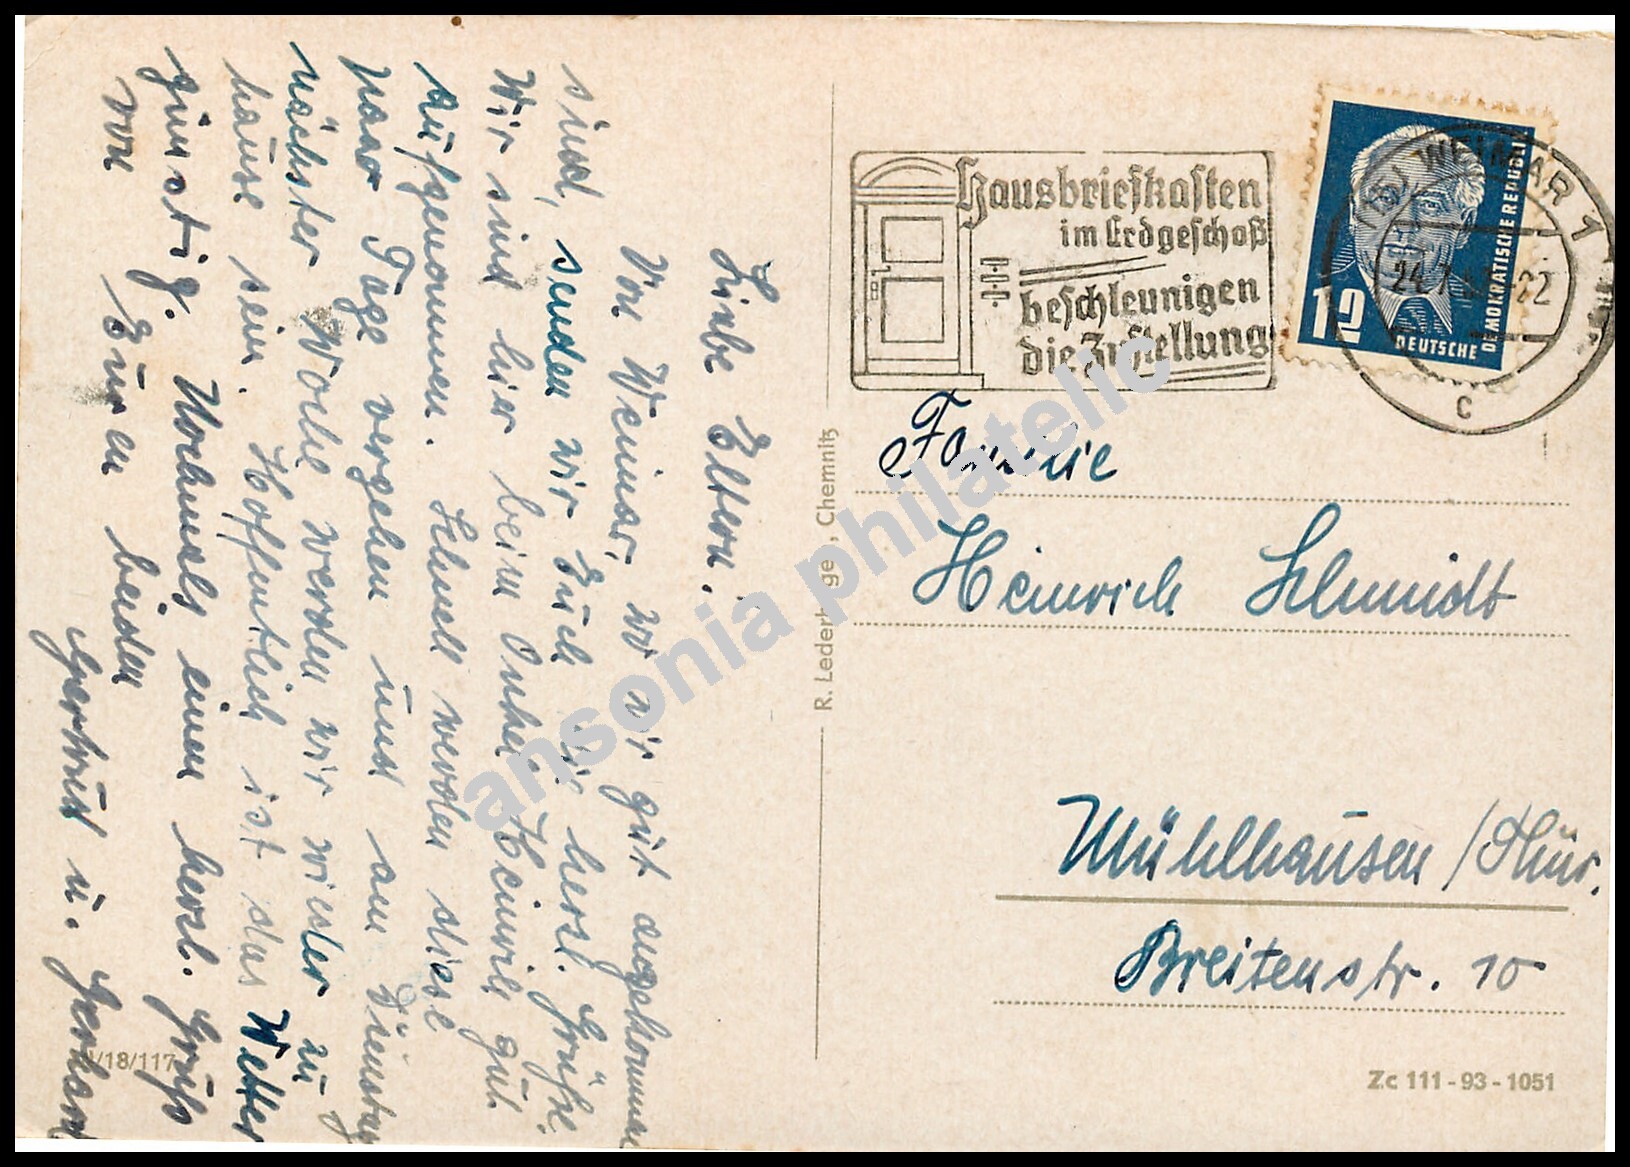 Liebe Eltern!
Von Weimar, wo wir gut angekommen
sind, senden wir Euch die herzl. Grüße.
Wir sind hier beim Onkel Heinrich gut
aufgenommen. Schnell werden diese
paar Tage vergehen und am Dienstag
nächster Woche werden wir wieder zu
hause sein. Hoffentlich ist das Wetter
günstig. Nochmals einen herzl. Gruß
von Euren beiden
Gertrud u. Gerhard
/18/117
R. Lederbogen, Chemnitz
Hausbriefkasten
im Erdgeschoß
beschleunigen
die Zustellung
WEIMAR 1
24.7. -22
c
12
DEUTSCHE
DEMOKRATISCHE REPUBLIK
Familie
Heinrich Schmidt
Mühlhausen / Thür.
Breitenstr. 10
Zc 111 - 93 - 1051
ansonia philatelic